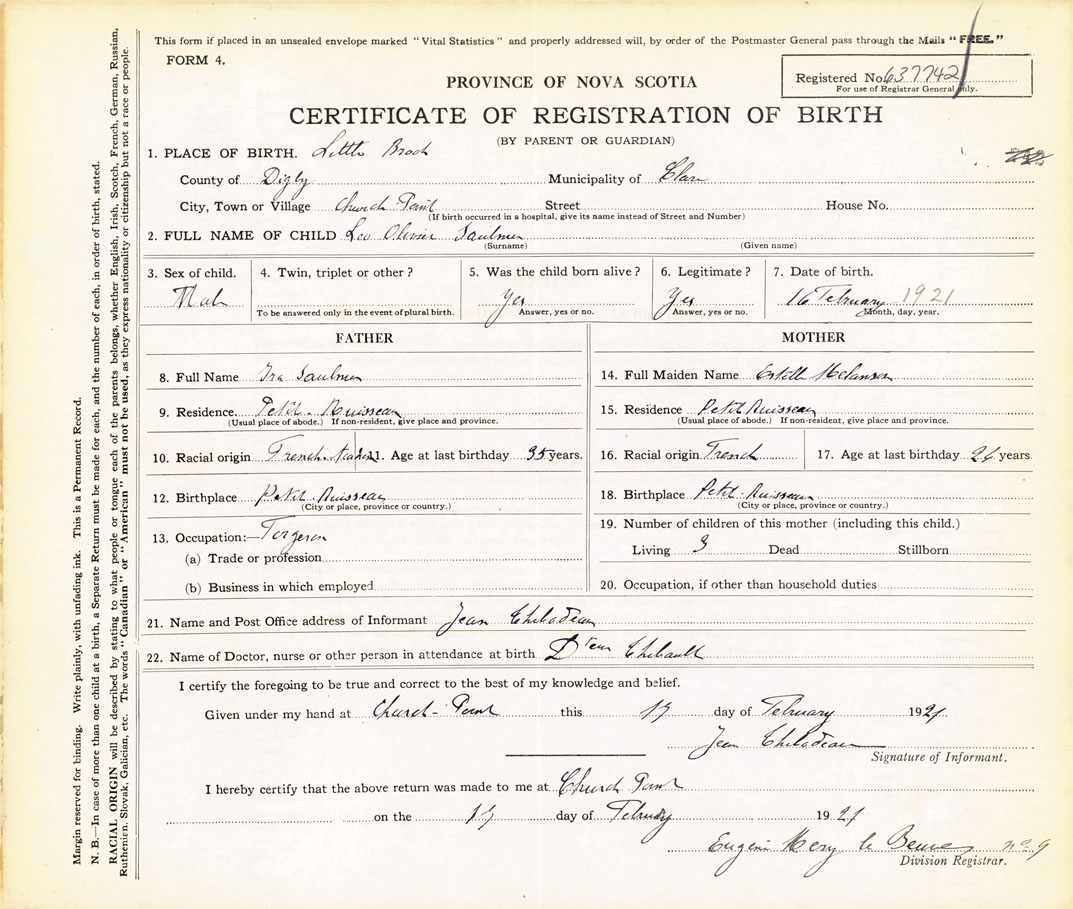 This form if placed in an unsealed envelope marked "Vital Statistics" and properly addressed will, by order of the Postmaster General pass through the Mails "FREE."
FORM 4.
Registered No. 637742
For use of Registrar General only.
PROVINCE OF NOVA SCOTIA
CERTIFICATE OF REGISTRATION OF BIRTH
(BY PARENT OR GUARDIAN)
1. PLACE OF BIRTH. Little Brook
County of Digby Municipality of Clare
City, Town or Village Church Point Street House No.
(If birth occurred in a hospital, give its name instead of Street and Number)
2. FULL NAME OF CHILD Leo Olivier Saulnier
(Surname) (Given name)
3. Sex of child. 4. Twin, triplet or other? 5. Was the child born alive? 6. Legitimate? 7. Date of birth.
Male Yes Yes 16 February 1921
To be answered only in the event of plural birth. Answer, yes or no. Answer, yes or no. Month, day, year.
FATHER MOTHER
8. Full Name Ira Saulnier 14. Full Maiden Name Estelle Melanson
9. Residence. Petit-Ruisseau 15. Residence Petit Ruisseau
(Usual place of abode.) If non-resident, give place and province. (Usual place of abode.) If non-resident, give place and province.
10. Racial origin French 11. Age at last birthday 35 years. 16. Racial origin French 17. Age at last birthday 26 years
12. Birthplace Petit-Ruisseau 18. Birthplace Petit-Ruisseau
(City or place, province or country.) (City or place, province or country.)
13. Occupation:— Forgeron 19. Number of children of this mother (including this child.)
(a) Trade or profession Living 3 Dead Stillborn
(b) Business in which employed 20. Occupation, if other than household duties
21. Name and Post Office address of Informant Jean Thibodeau
22. Name of Doctor, nurse or other person in attendance at birth Dteur Thibault
I certify the foregoing to be true and correct to the best of my knowledge and belief.
Given under my hand at Church-Point this 17 day of February 1921
Jean Thibodeau
Signature of Informant.
I hereby certify that the above return was made to me at Church Point
on the 17 day of February 1921
Eugène Mery le Beuve no. 9
Division Registrar.
Margin reserved for binding. Write plainly, with unfading ink. This is a Permanent Record.
N. B.—In case of more than one child at a birth, a Separate Return must be made for each, and the number of each, in order of birth, stated.
RACIAL ORIGIN will be described by stating to what people or tongue each of the parents belongs, whether English, Irish, Scotch, French, German, Russian,
Ruthenian, Slovak, Galician, etc. The words "Canadian" or "American" must not be used, as they express nationality or citizenship but not a race or people.